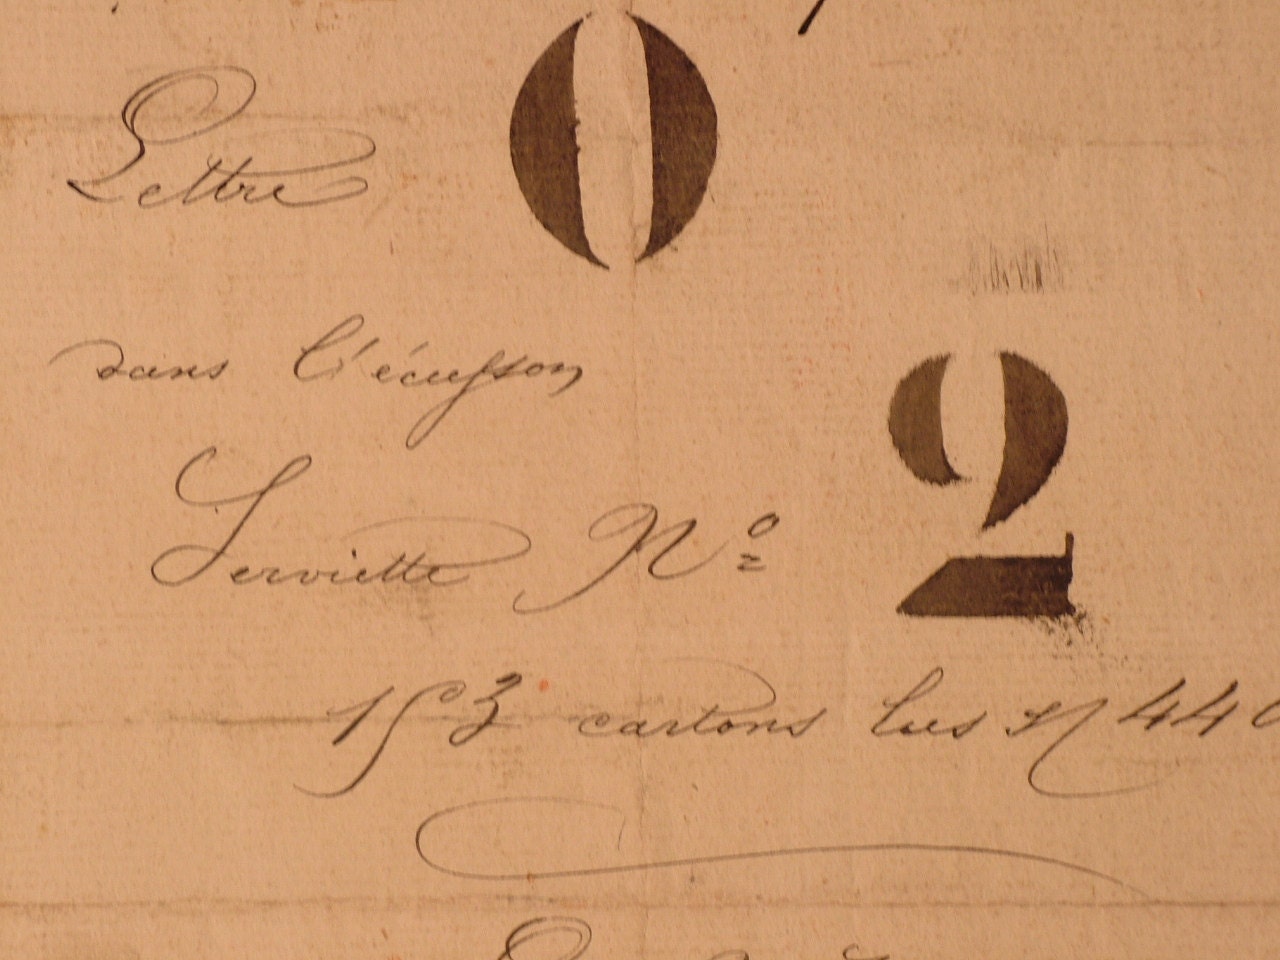 Lettre O
dans l'écusson
Serviette Nº 2
153 cartons lus